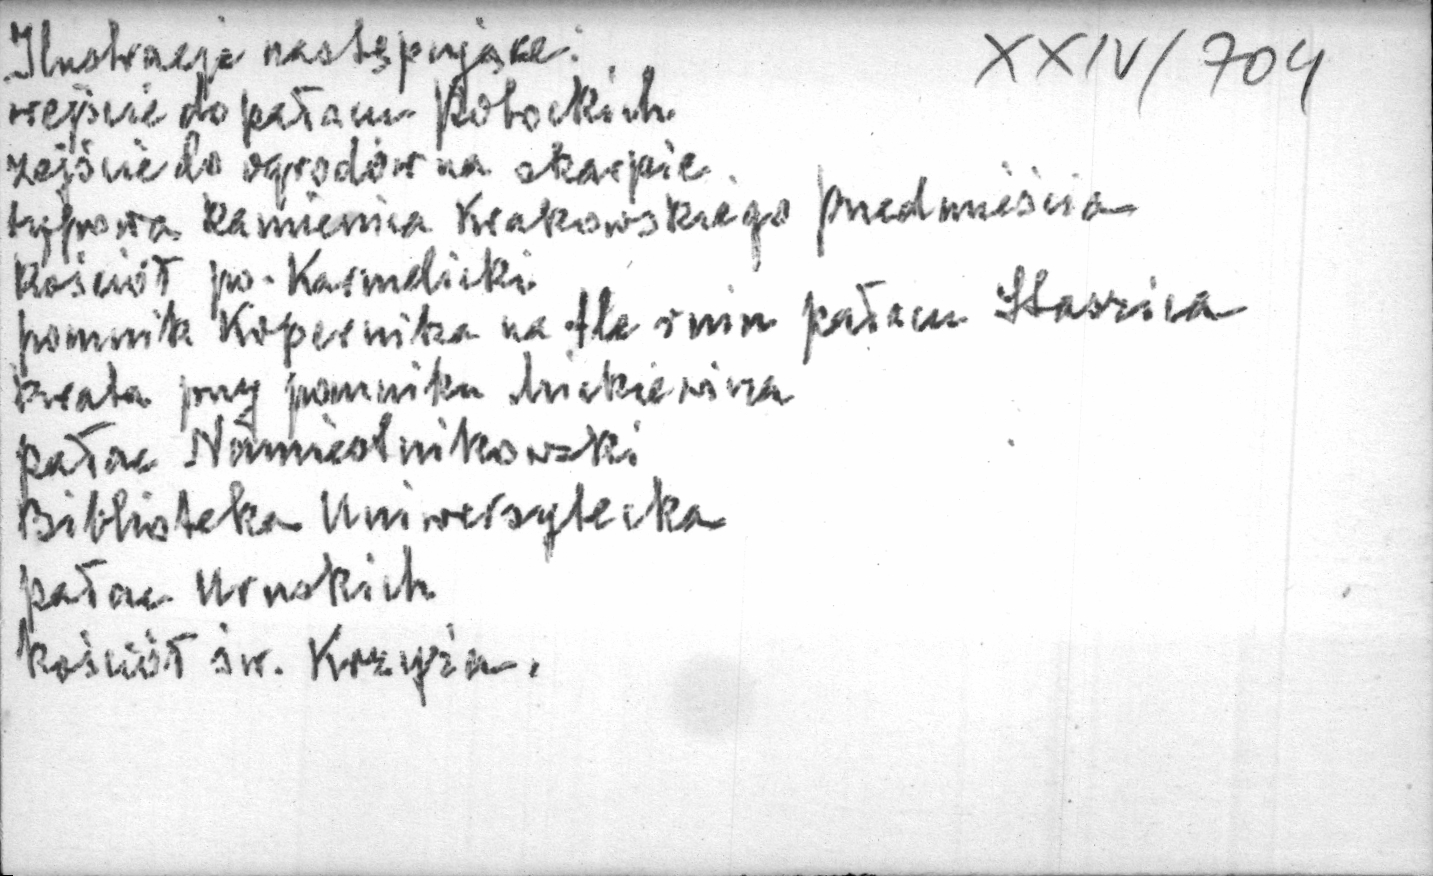 XXIV/704
Ilustracje następujące:
wejście do pałacu Potockich
zejście do ogrodów na skarpie
typowa kamienica Krakowskiego Przedmieścia
kościół po-Karmelicki
pomnik Kopernika na tle ruin pałacu Staszica
krata przy pomniku Mickiewicza
pałac Namiestnikowski
Biblioteka Uniwersytecka
pałac Uruskich
kościół św. Krzyża.